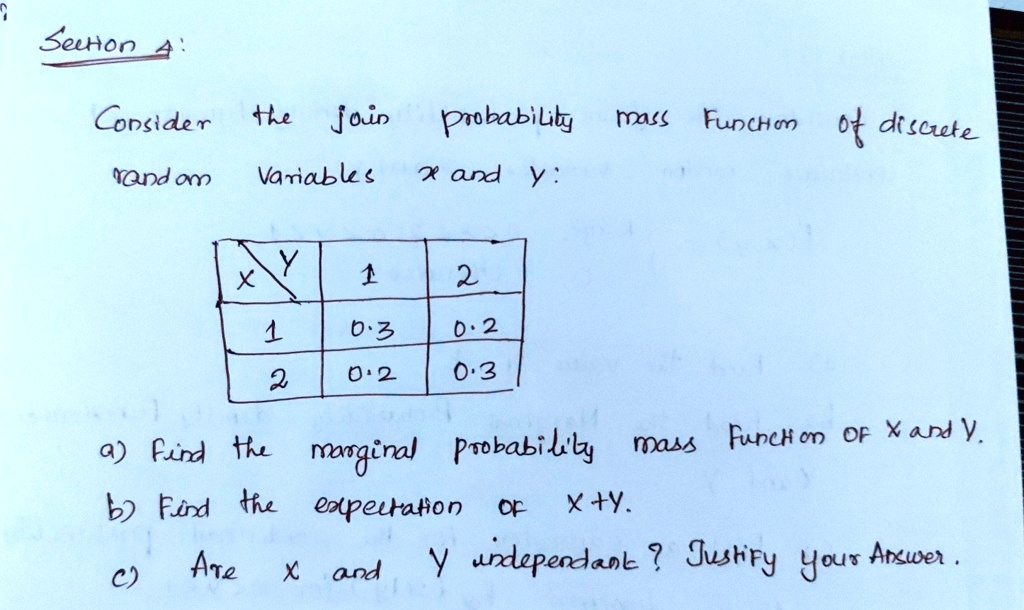 Section 4:
Consider the join probability mass Function of discrete
random variables x and y:
X Y 1 2
1 0.3 0.2
2 0.2 0.3
a) Find the marginal probability mass Function OF X and Y.
b) Find the expectation OF X+Y.
c) Are X and Y independant? Justify your Answer.